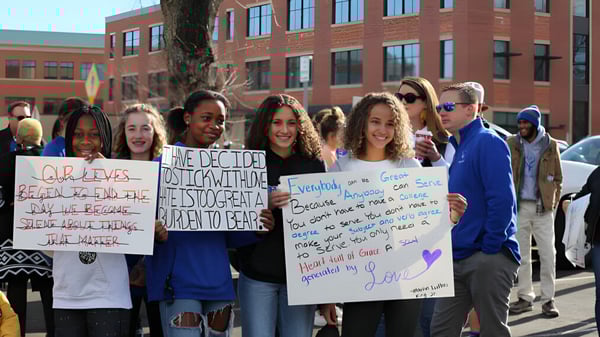 OUR LIVES
BEGIN TO END THE
DAY WE BECOME
SILENT ABOUT THINGS
THAT MATTER
I HAVE DECIDED
TO STICK WITH LOVE
HATE IS TOO GREAT A
BURDEN TO BEAR
Everybody can be Great
Because Anybody can Serve
You don't have to have a College
degree to serve You don't have to
make your Subject and verb agree
to serve You only need a
Heart full of Grace A soul
generated by Love
-Martin Luther
King Jr.